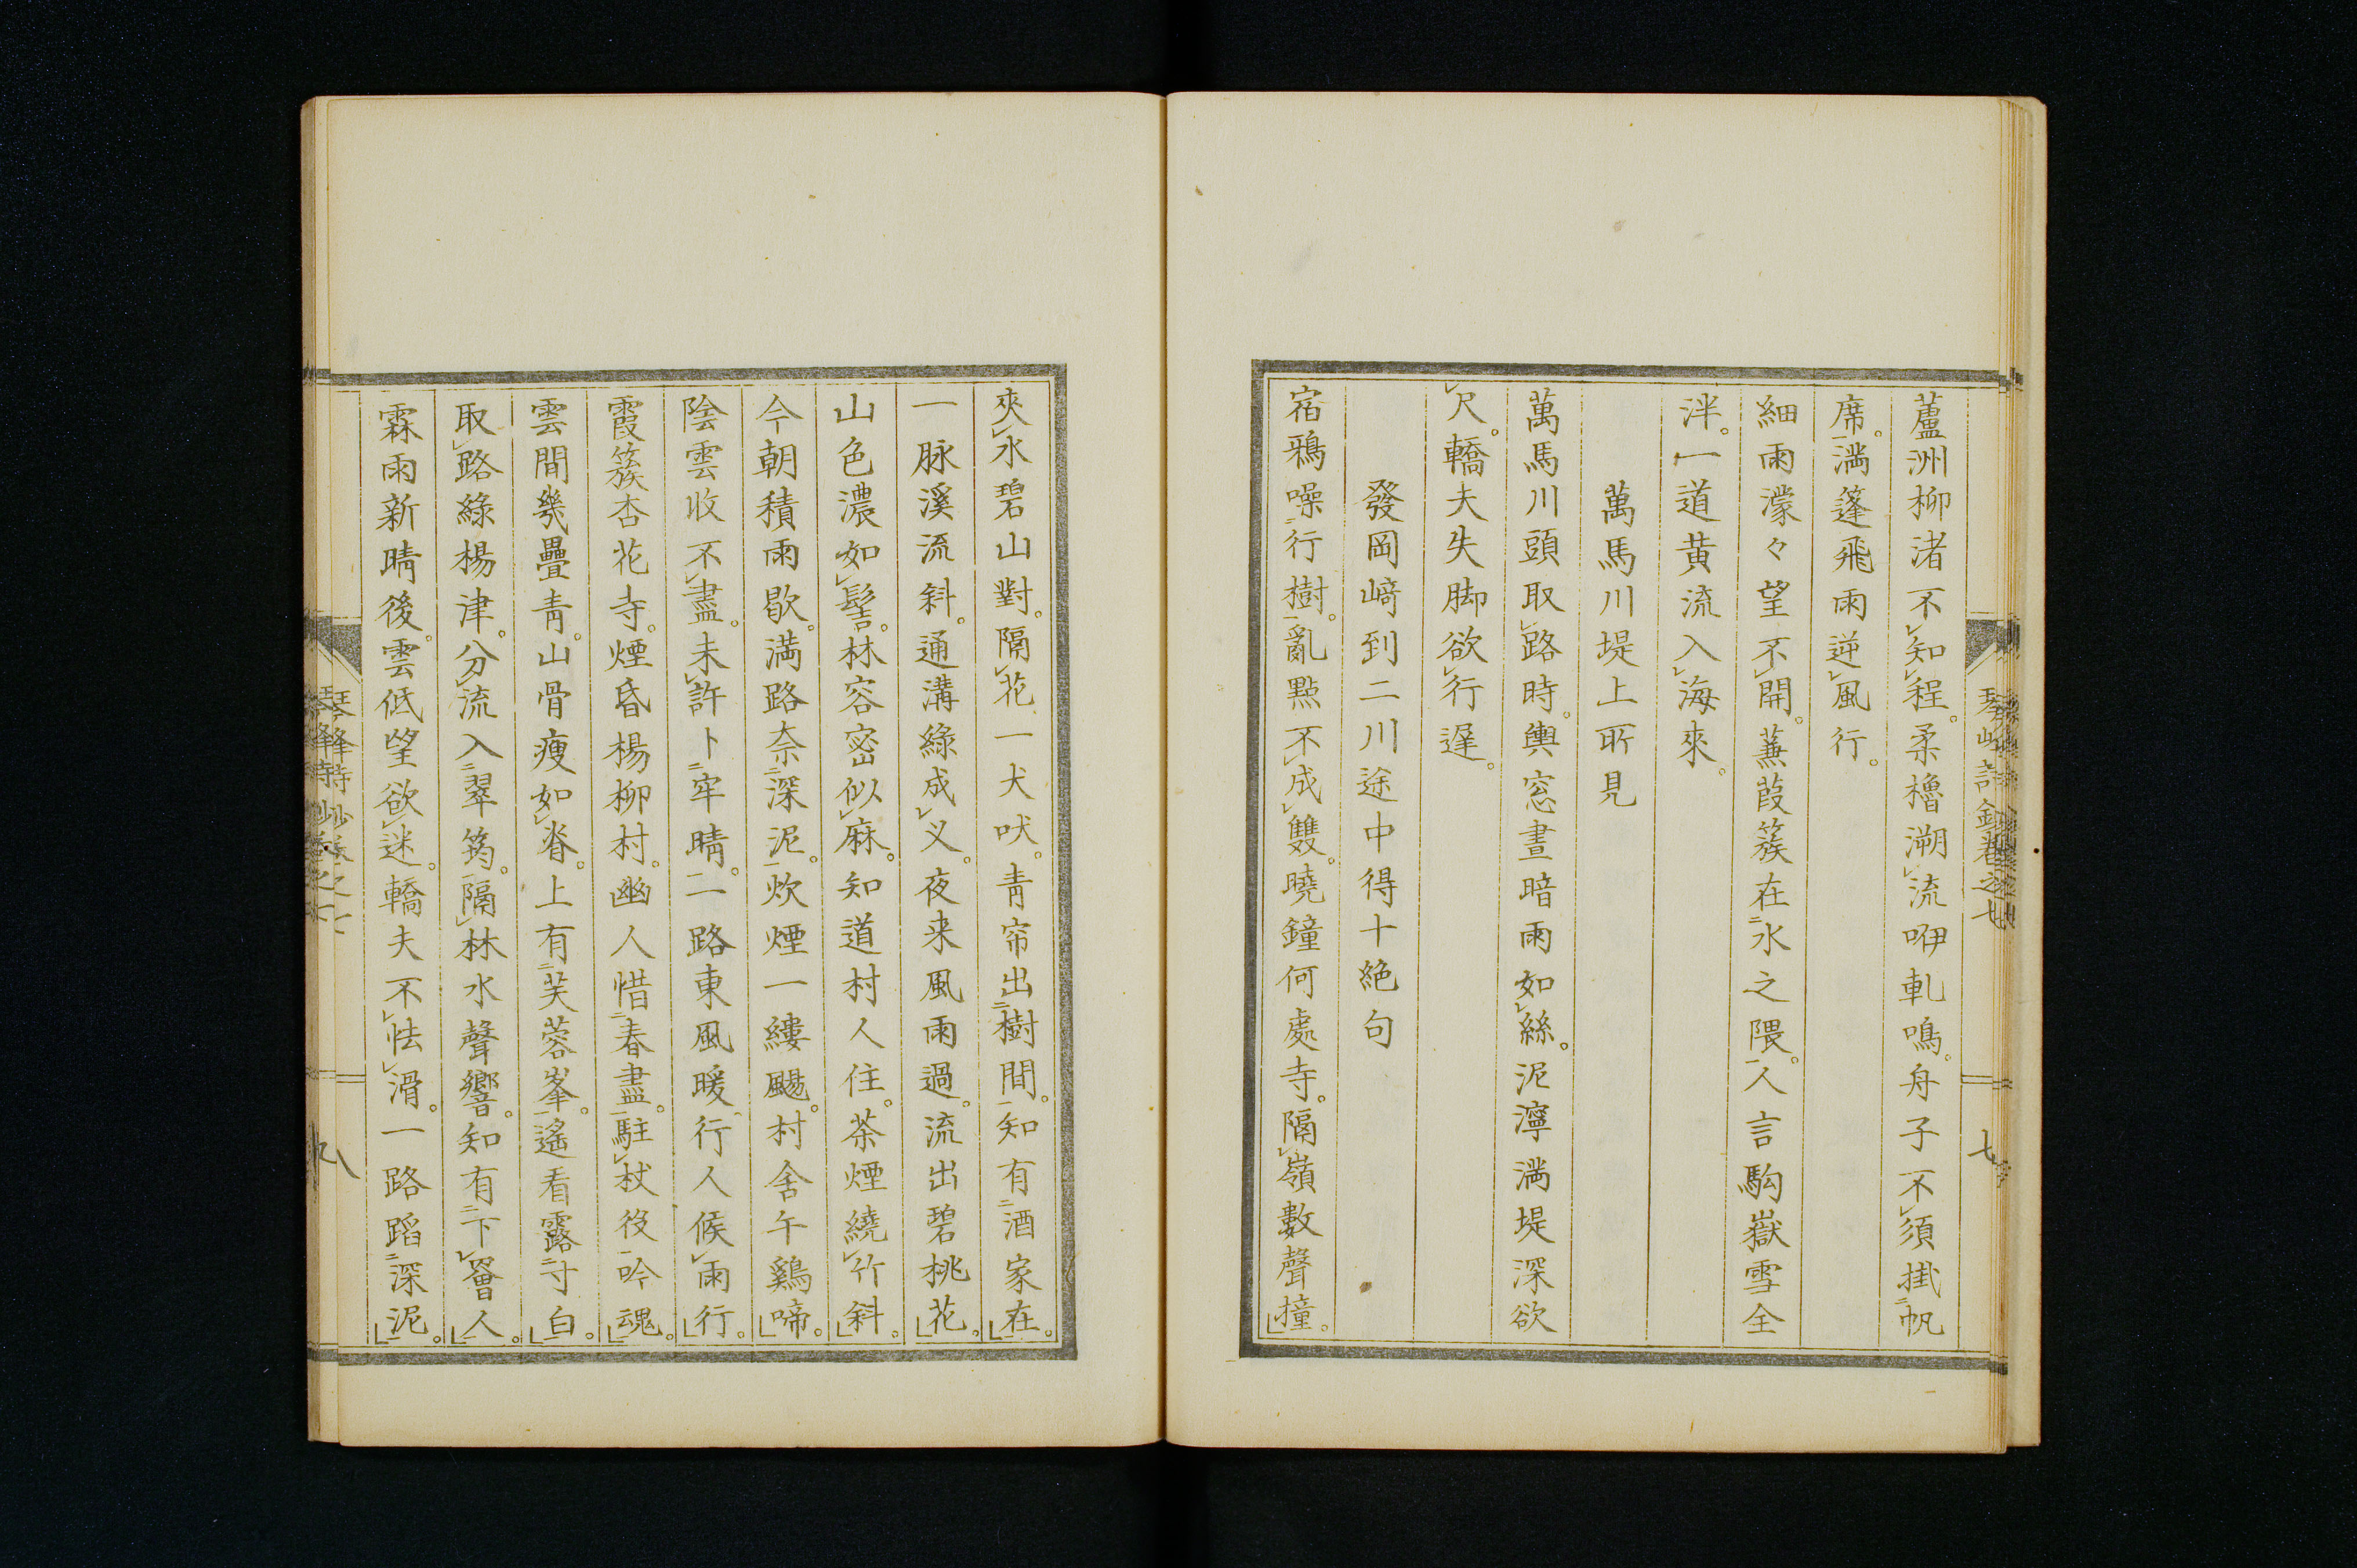 蘆洲柳渚不知程。柔櫓溯流咿軋鳴。舟子不須掛帆
席。満篷飛雨逆風行。
細雨濛々望不開。蒹葭簇在水之隈。人言駒嶽雪全
泮。一道黄流入海來。
萬馬川堤上所見
萬馬川頭取路時。輿窓晝暗雨如絲。泥濘満堤深欲
尺。轎夫失脚欲行遅。
發岡﨑到二川途中得十絶句
宿鴉噪行樹。亂點不成雙。曉鐘何處寺。隔嶺數聲撞。
夾水碧山對。隔花一犬吠。青帘出樹間。知有酒家在。
一脉溪流斜。通溝綠成义。夜来風雨過。流出碧桃花。
山色濃如髻。林容密似麻。知道村人住。茶煙繞竹斜。
今朝積雨歇。満路奈深泥。炊煙一縷颺。村舎午鷄啼。
陰雲收不盡。未許卜牢晴。二路東風暖。行人候雨行。
霞簇杏花寺。煙昏楊柳村。幽人惜春盡。駐杖役吟魂。
雲間幾疊青。山骨瘦如脊。上有芙蓉峯。遙看露寸白。
取路綠楊津。分流入翠筠。隔林水聲響。知有下罾人。
霖雨新晴後。雲低望欲迷。轎夫不怯滑。一路蹈深泥。
詩鈔卷之七
七
八